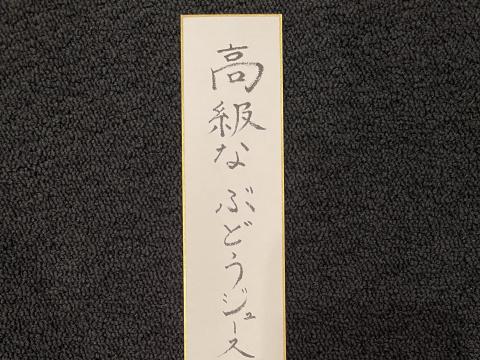 高級なぶどうジュース